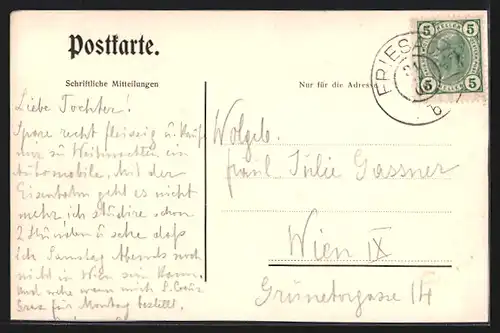 Postkarte.
Schriftliche Mitteilungen
Nur für die Adresse
5 5
5 HELLER 5
FRIES
b
Liebe Tochter!
Spare recht fleissig u. kaufe
mir zu Weihnachten ein
Automobile. Mit der
Eisenbahn geht es nicht
mehr, ich studire schon
2 Stunden u. sehe daß
ich Samstag Abends noch
nicht in Wien sein kann.
Auch wenn mich
für Montag bestellt.
Wolgeb.
Fräul. Julie Gassner
Wien IX
Grünetorgasse 14